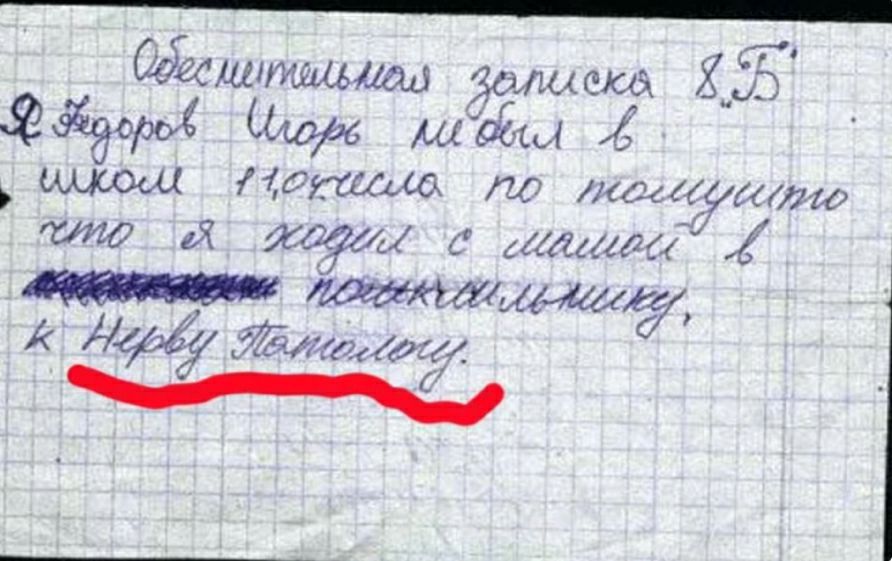 Обеснительная записка 8 „Б"
Я Фёдоров Игорь не был в
школе 11,04 числа по томушто
что я ходил с мамой в
к Нерву Патологу.